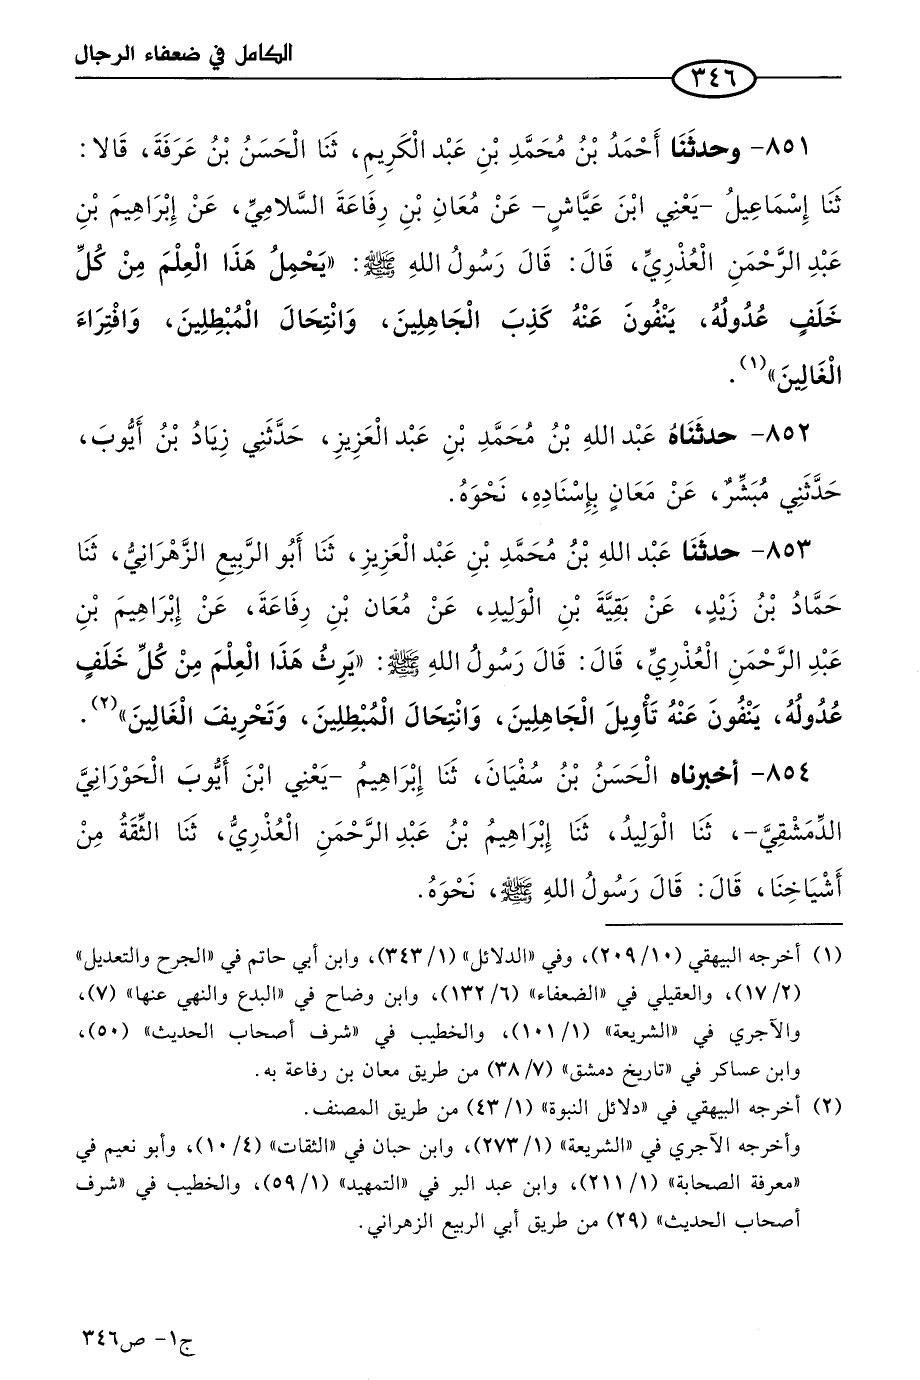 الكامل في ضعفاء الرجال
٣٤٦
٨٥١- وحدثَنَا أَحْمَدُ بْنُ مُحَمَّدِ بْنِ عَبْدِ الْكَرِيمِ، ثَنَا الْحَسَنُ بْنُ عَرَفَةَ، قَالا :
ثَنَا إِسْمَاعِيلُ -يَعْنِي ابْنَ عَيَّاشٍ- عَنْ مُعَانِ بْنِ رِفَاعَةَ السَّلامِيِّ، عَنْ إِبْرَاهِيمَ بْنِ
عَبْدِ الرَّحْمَنِ الْعُذْرِيِّ، قَالَ: قَالَ رَسُولُ اللهِ ﷺ: «يَحْمِلُ هَذَا الْعِلْمَ مِنْ كُلِّ
خَلَفٍ عُدُولُهُ، يَنْفُونَ عَنْهُ كَذِبَ الْجَاهِلِينَ، وَانْتِحَالَ الْمُبْطِلِينَ، وَافْتِرَاءَ
الْغَالِينَ»(١).
٨٥٢- حدثَنَاهُ عَبْد اللهِ بْنُ مُحَمَّدِ بْنِ عَبْد الْعَزِيزِ، حَدَّثَنِي زِيَادُ بْنُ أَيُّوبَ،
حَدَّثَنِي مُبَشِّرٌ، عَنْ مَعَانٍ بِإِسْنَادِهِ، نَحْوَهُ.
٨٥٣- حدثَنَا عَبْد اللهِ بْنُ مُحَمَّدِ بْنِ عَبْد الْعَزِيزِ، ثَنَا أَبُو الرَّبِيعِ الزَّهْرَانِيُّ، ثَنَا
حَمَّادُ بْنُ زَيْدٍ، عَنْ بَقِيَّةَ بْنِ الْوَلِيدِ، عَنْ مُعَان بْنِ رِفَاعَةَ، عَنْ إِبْرَاهِيمَ بْنِ
عَبْدِ الرَّحْمَنِ الْعُذْرِيِّ، قَالَ: قَالَ رَسُولُ اللهِ ﷺ: «يَرِثُ هَذَا الْعِلْمَ مِنْ كُلِّ خَلَفٍ
عُدُولُهُ، يَنْفُونَ عَنْهُ تَأْوِيلَ الْجَاهِلِينَ، وَانْتِحَالَ الْمُبْطِلِينَ، وَتَحْرِيفَ الْغَالِينَ»(٢).
٨٥٤- أخبرناه الْحَسَنُ بْنُ سُفْيَانَ، ثَنَا إِبْرَاهِيمُ -يَعْنِي ابْنَ أَيُّوبَ الْحَوْرَانِيَّ
الدِّمَشْقِيَّ-، ثَنَا الْوَلِيدُ، ثَنَا إِبْرَاهِيمُ بْنُ عَبْدِ الرَّحْمَنِ الْعُذْرِيُّ، ثَنَا الثِّقَةُ مِنْ
أَشْيَاخِنَا، قَالَ: قَالَ رَسُولُ اللهِ ﷺ، نَحْوَهُ.
(١) أخرجه البيهقي (٢٠٩/١٠)، وفي «الدلائل» (٣٤٣/١)، وابن أبي حاتم في «الجرح والتعديل»
(١٧/٢)، والعقيلي في «الضعفاء» (١٣٢/٦)، وابن وضاح في «البدع والنهي عنها» (٧)،
والآجري في «الشريعة» (١٠١/١)، والخطيب في «شرف أصحاب الحديث» (٥٠)،
وابن عساكر في «تاريخ دمشق» (٣٨/٧) من طريق معان بن رفاعة به.
(٢) أخرجه البيهقي في «دلائل النبوة» (٤٣/١) من طريق المصنف.
وأخرجه الآجري في «الشريعة» (٢٧٣/١)، وابن حبان في «الثقات» (١٠/٤)، وأبو نعيم في
«معرفة الصحابة» (٢١١/١)، وابن عبد البر في «التمهيد» (٥٩/١)، والخطيب في «شرف
أصحاب الحديث» (٢٩) من طريق أبي الربيع الزهراني.
ج١- ص٣٤٦